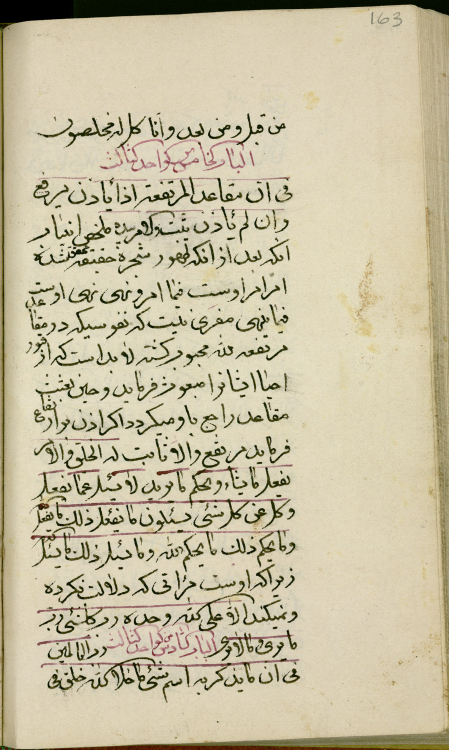 163
من قبل ومن بعد وانا کل له مخلصون
الباب الخامس من الواحد الثالث
فی ان مقاعد المرتفعة اذا یاذن یرفع
وان لم یاذن یثبت والامر بیده ملخص این باب
انکه بعد از انکه ظهور شجره حقیقت شد
امر امر اوست فما امر ونهی نهی اوست
فیما نهی مفری نیست که نفوسیکه در مقاعد
مرتفعه لله محبور کشته لابد است که از قبور
احیا ایشانرا مبعوث فرماید وحین بعثت
مقاعد راجع باو میکردد اکر اذن بارتفاع
فرماید مرتفع والا ثابت له الخلق والامر
یفعل ما یشاء ویحکم ما یرید لا یسئل عما یفعل
وکل عن کل شئ یسئلون ما یفعل ذلک ما یفعل
وما یحکم ذلک ما یحکم الله وما یسئل ذلک ما یسئل
زیرا که اوست مراتی که دلالت نکرده
ونمیکند الا علی الله وحده رب کلشئ رب
ما یری وما لا یری الباب السادس من الواحد الثالث رب العالمین
فی ان ما یذکر به اسم شئ ما خلا الله خلق فی